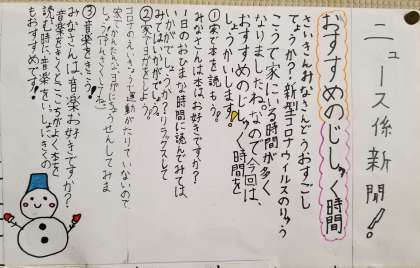 ニュース係新聞!
おすすめのじしゅく時間
さいきんみなさんどうおすごし
でしょうか?新型コロナウイルスのりゅう
こうで家にいる時間が多く
なりましたね。なので、今回は、
おすすめのじしゅく時間を
しょうかいします!
①家で本を読もう。
みなさんは本はお好きですか?
1日のおひまな時間に読んでみては、
いかがでしょうか?リラックスして
②家でヨガをしよう。
コロナのえいきょうで運動がたりていないので
家でかんたんなヨガにちょうせんしてみま
しょう!
③音楽をきこう!
みなさんは音楽お好きですか?
音楽をきくとここちがよく本を
読む時に、音楽をいっしょにきくの
もおすすめです!